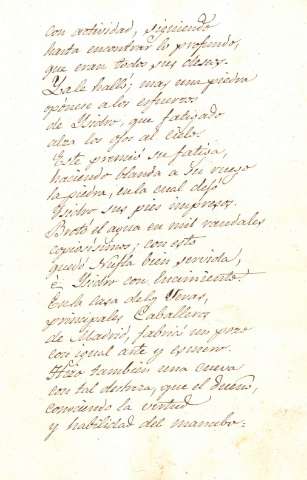 con actividad, siguiendo
hasta encontrar lo profundo,
que eran todos sus deseos.
Y ale halló; mas una piedra
opónese a los esfuerzos
de Ysidro, que fatigado
alza los ojos al cielo.
Este premió su fatiga,
haciendo blanda a su ruego
la piedra, en la cual dejó
Ysidro sus pies impresos.
Brotó el agua en mil raudales
copiosisimos; con esto
quedó Nufla bien servida,
é Ysidro con lucimiento.
En la casa de los Veras,
principales Caballeros
de Madrid, fabricó un pozo
con igual arte y esmero.
Hizo tambien una cueva
con tal destreza, que el dueño,
conociendo la virtud
y habilidad del mancebo: